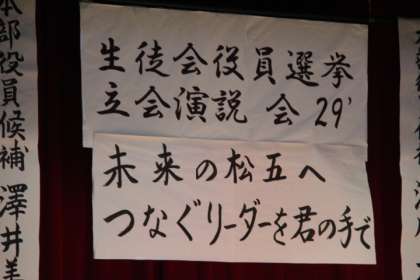 生徒会役員選挙
立会演説会 29'
未来の松五へ
つなぐリーダーを君の手で
本部役員候補 澤井美